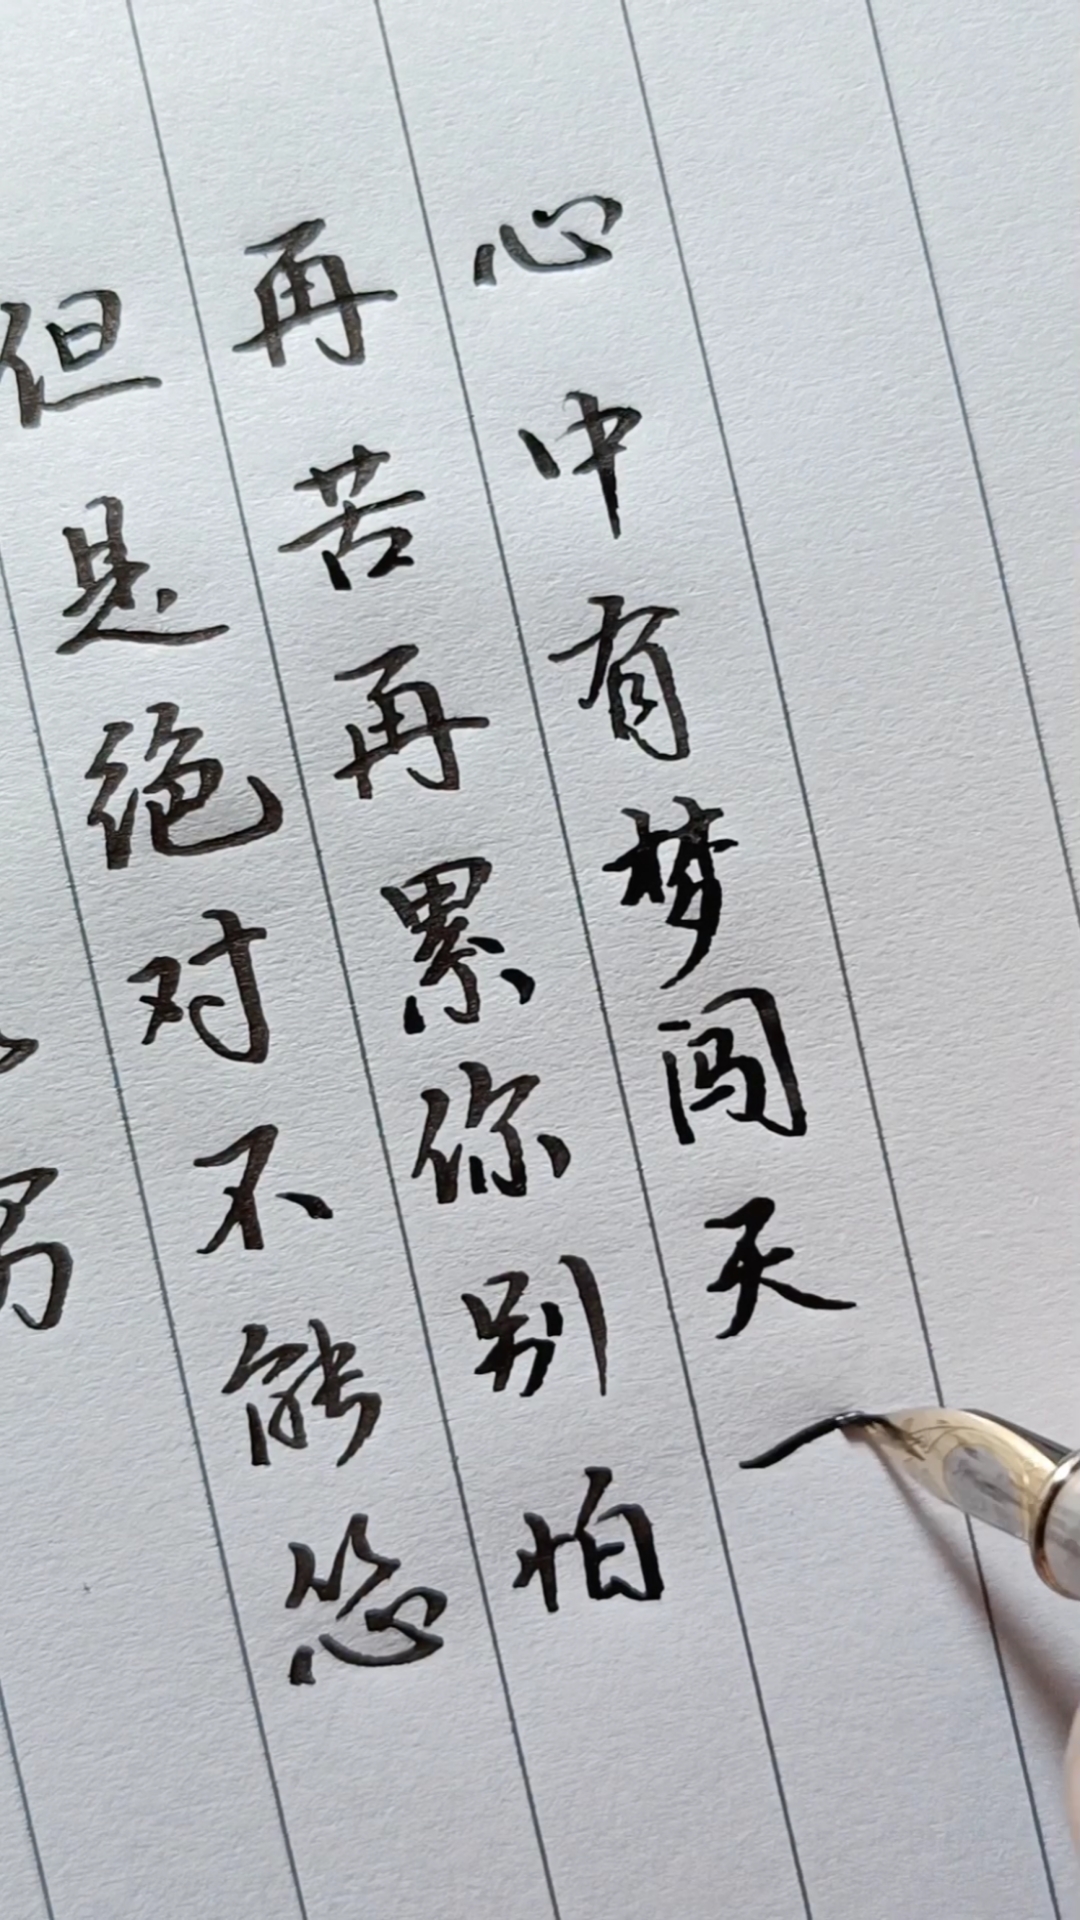 但是绝对不能怂
再苦再累你别怕
心中有梦闯天